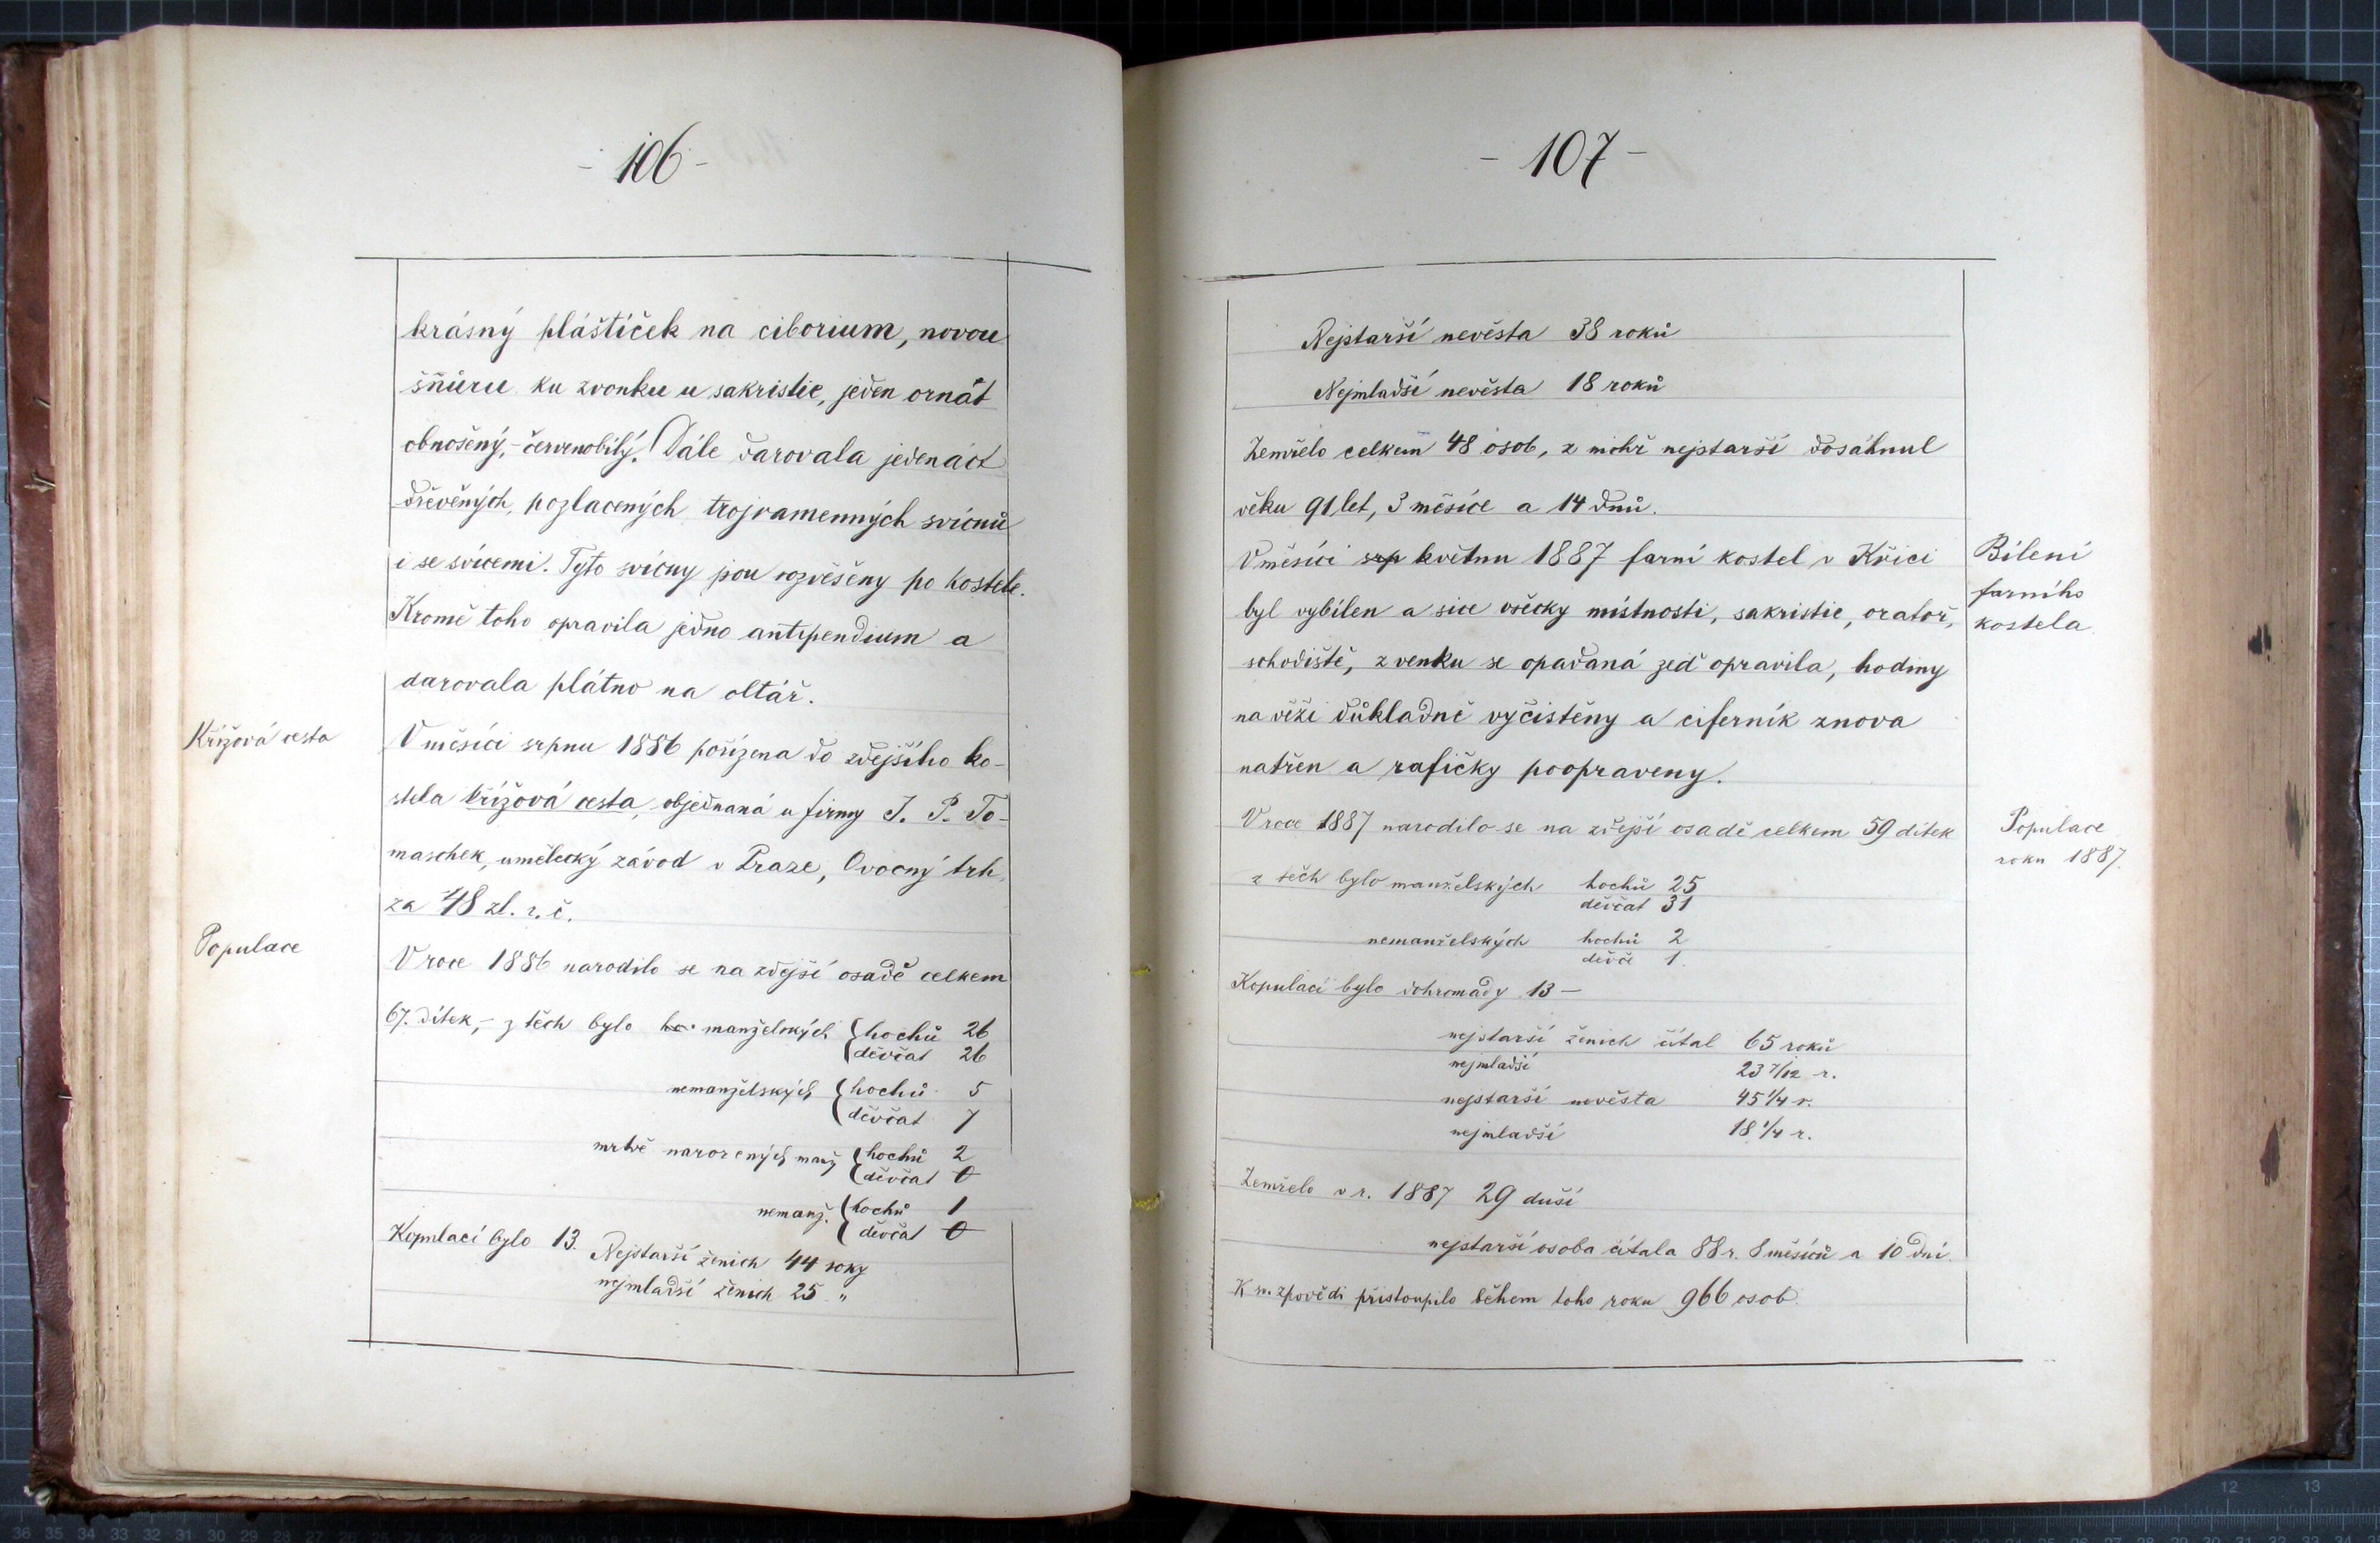 - 106 -
krásný pláštíček na ciborium, novou
šňůru ku zvonku u sakristie, jeden ornát
obnošený, - červenobílý. Dále darovala jedenáct
dřevěných, pozlacených trojramenných svícnů
i se svícemi. Tyto svícny jsou rozvěšeny po kostele.
Kromě toho opravila jedno antipendium a
darovala plátno na oltář.
Křížová cesta
V měsíci srpnu 1886 pořízena do zdejšího ko-
stela křížová cesta, objednaná u firmy J. P. To-
maschek, umělecký závod v Praze, Ovocný trh,
za 48 zl. r. č.
Populace
V roce 1886 narodilo se na zdejší osadě celkem
67. dítek, - z těch bylo ho manželských hochů 26
děvčat 26
nemanželských hochů 5
děvčat 7
mrtvě narozených manž hochů 2
děvčat 0
nemanž. hochů 1
děvčat 0
Kopulací bylo 13. Nejstarší ženich 44 roky
nejmladší ženich 25 "
- 107 -
Nejstarší nevěsta 38 roků
Nejmladší nevěsta 18 roků
Zemřelo celkem 48 osob, z nichž nejstarší dosáhnul
věku 91 let, 3 měsíce a 14 dnů.
V měsíci srp květnu 1887 farní kostel v Křici
byl vybílen a sice všecky místnosti, sakristie, oratoř,
schodiště, z venku se opadaná zeď opravila, hodiny
na věži důkladně vyčistěny a ciferník znova
natřen a rafičky poopraveny.
Bílení
farního
kostela
V roce 1887 narodilo se na zdejší osadě celkem 59 dítek
Populace
roku 1887.
z těch bylo manželských hochů 25
děvčat 31
nemanželských hochů 2
děvče 1.
Kopulací bylo dohromady 13 -
nejstarší ženich čítal 65 roků
nejmladší 23 7/12 r.
nejstarší nevěsta 45 1/4 r.
nejmladší 18 1/4 r.
Zemřelo v r. 1887 29 duší
nejstarší osoba čítala 88 r. 8 měsíců a 10 dní.
K sv. zpovědi přistoupilo během toho roku 966 osob.